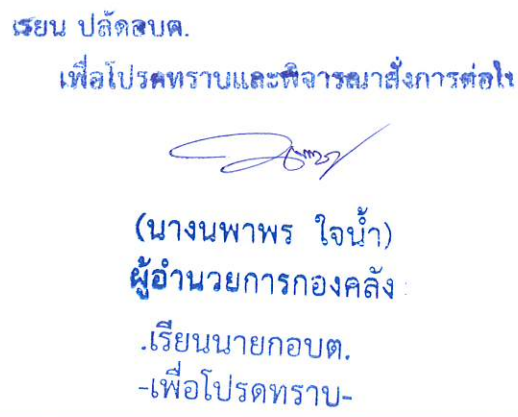 เรียน ปลัดอบต.
เพื่อโปรดทราบและพิจารณาสั่งการต่อไป
(นางนพาพร ใจน้ำ)
ผู้อำนวยการกองคลัง
.เรียนนายกอบต.
-เพื่อโปรดทราบ-